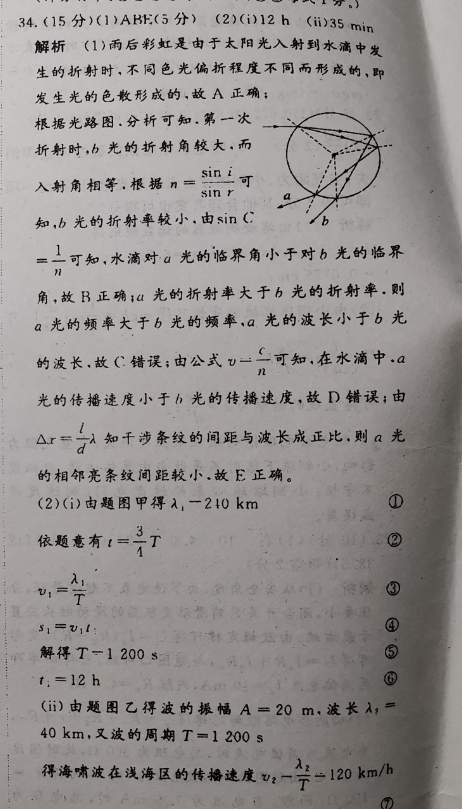 34.(15分)(1)ABE(5分) (2)(i)12 h (ii)35 min
解析 (1)雨后彩虹是由于太阳光入射到水滴中发
生的折射时,不同色光偏折程度不同而形成的,即
发生光的色散形成的,故A正确;
根据光路图,分析可知,第一次
折射时,b光的折射角较大,而
入射角相等,根据n=sin i/sin r可
知,b光的折射率较小,由sin C
=1/n可知,水滴对a光的临界角小于对b光的临界
角,故B正确;a光的折射率大于b光的折射率,则
a光的频率大于b光的频率,a光的波长小于b光
的波长,故C错误;由公式v=c/n可知,在水滴中,a
光的传播速度小于b光的传播速度,故D错误;由
Δx=l/d λ知干涉条纹的间距与波长成正比,则a光
的相邻亮条纹间距较小,故E正确。
a
b
(2)(i)由题图甲得λ₁=240 km ①
依题意有t=3/4 T ②
v₁=λ₁/T ③
s₁=v₁t₁ ④
解得T=1 200 s ⑤
t₁=12 h ⑥
(ii)由题图乙得波的振幅A=20 m,波长λ₂=
40 km,又波的周期T=1 200 s
得海啸波在浅海区的传播速度v₂=λ₂/T=120 km/h
⑦